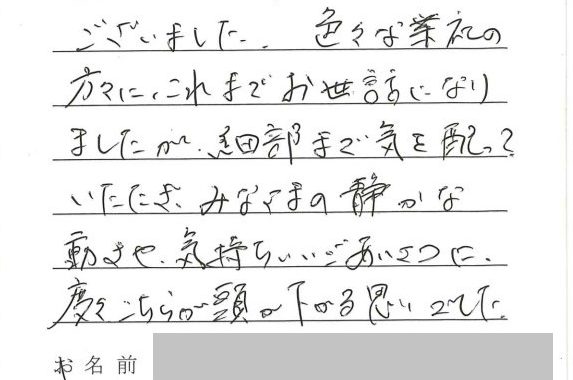 ございました. 色々な業社の
方々に、これまでお世話になり
ましたが、細部まで気を配って
いただき、みなさまの静かな
動きや、気持ちいいごあいさつに、
度々こちらが頭が下がる思いでした
お名前